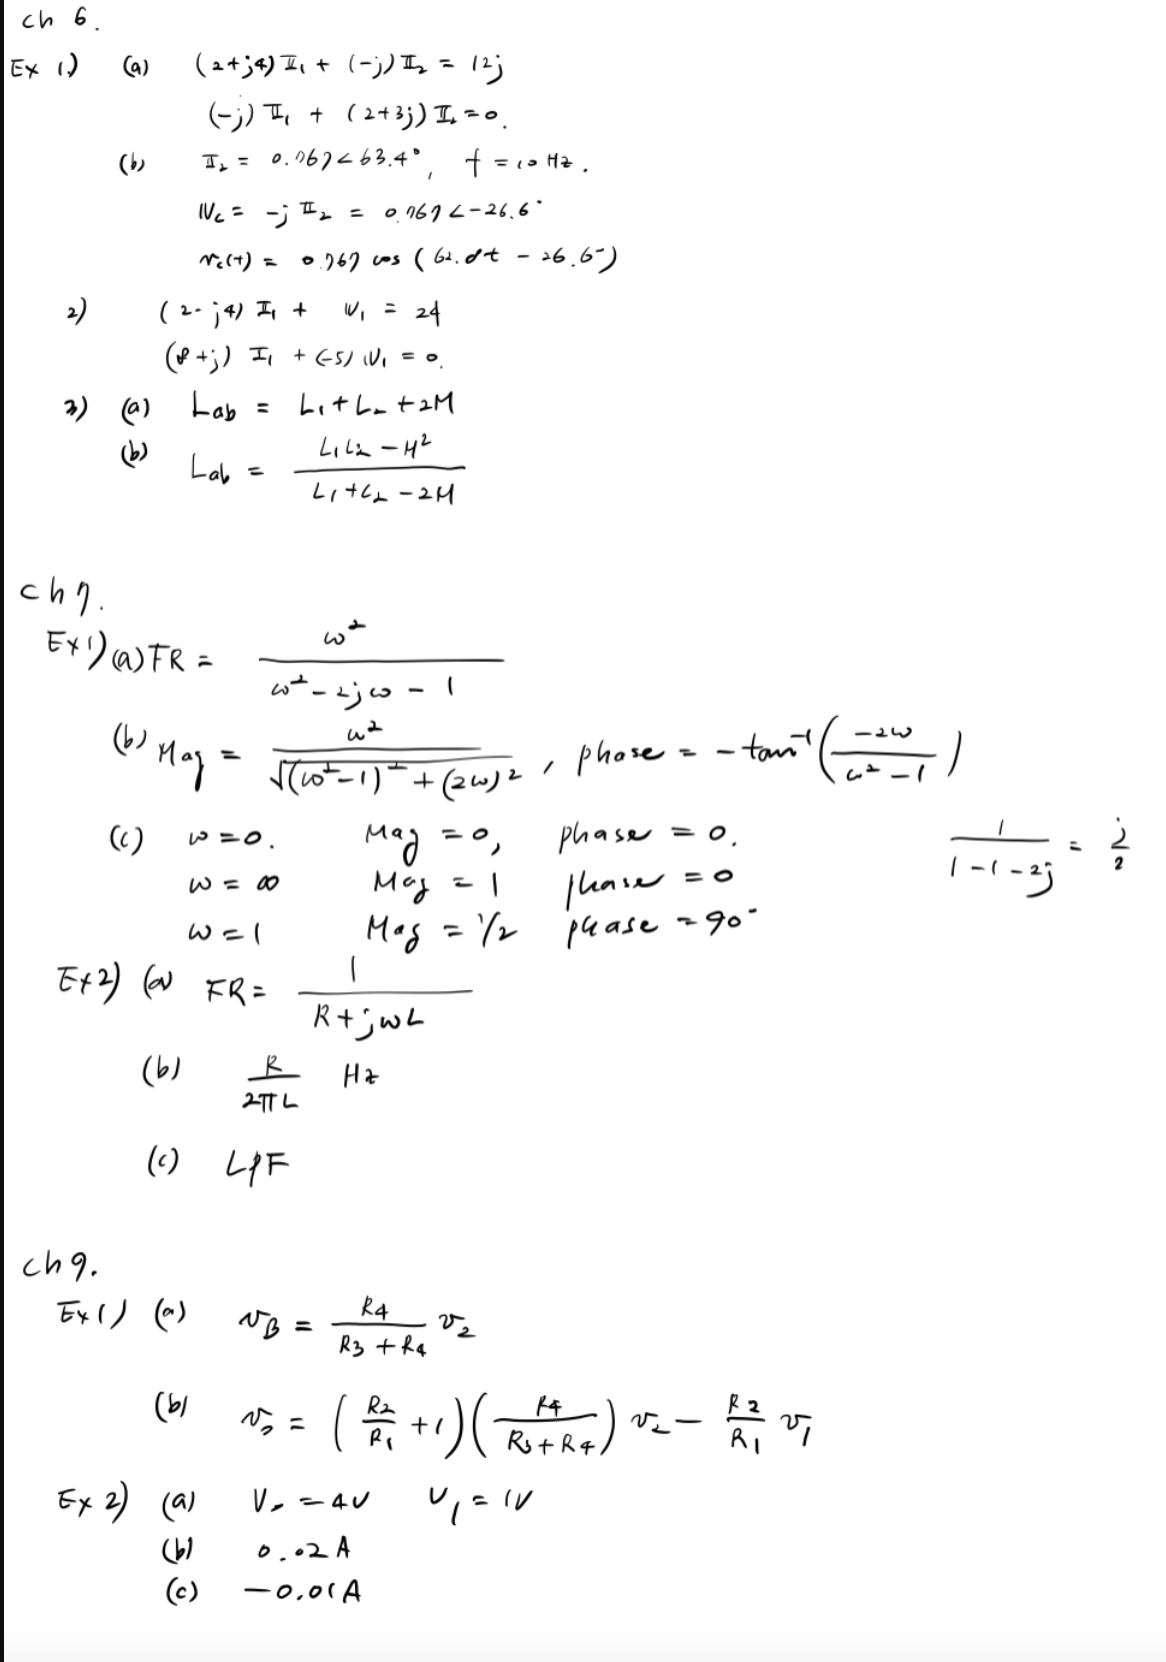 ch 6.
Ex 1) (a) (2+j4) I₁ + (-j) I₂ = 12j
(-j) I₁ + (2+3j) I₂ = 0.
(b) I₂ = 0.767∠63.4°, f = 10 Hz.
Vc = -j I₂ = 0.767∠-26.6°
vc(t) = 0.767 cos (62.8t - 26.6°)
2) (2-j4) I₁ + V₁ = 24
(8+j) I₁ + (-5) V₁ = 0.
3) (a) Lab = L₁+L₂+2M
(b) Lab = (L₁L₂ - M²) / (L₁+L₂-2M)
ch 7.
Ex 1) (a) FR = ω² / (ω² - 2jω - 1)
(b) Mag = ω² / √((ω²-1)² + (2ω)²), phase = -tan⁻¹(-2ω / (ω²-1))
(c) ω=0. Mag = 0, phase = 0. 1/(1-1-2j) = j/2
ω = ∞ Mag = 1 phase = 0
ω = 1 Mag = 1/2 phase = 90°
Ex 2) (a) FR = 1 / (R+jωL)
(b) R/(2πL) Hz
(c) LPF
ch 9.
Ex 1) (a) vB = R4/(R3+R4) v2
(b) vo = (R2/R1 + 1)(R4/(R3+R4)) v2 - R2/R1 v1
Ex 2) (a) Vo = 4V V1 = 1V
(b) 0.02A
(c) -0.01A